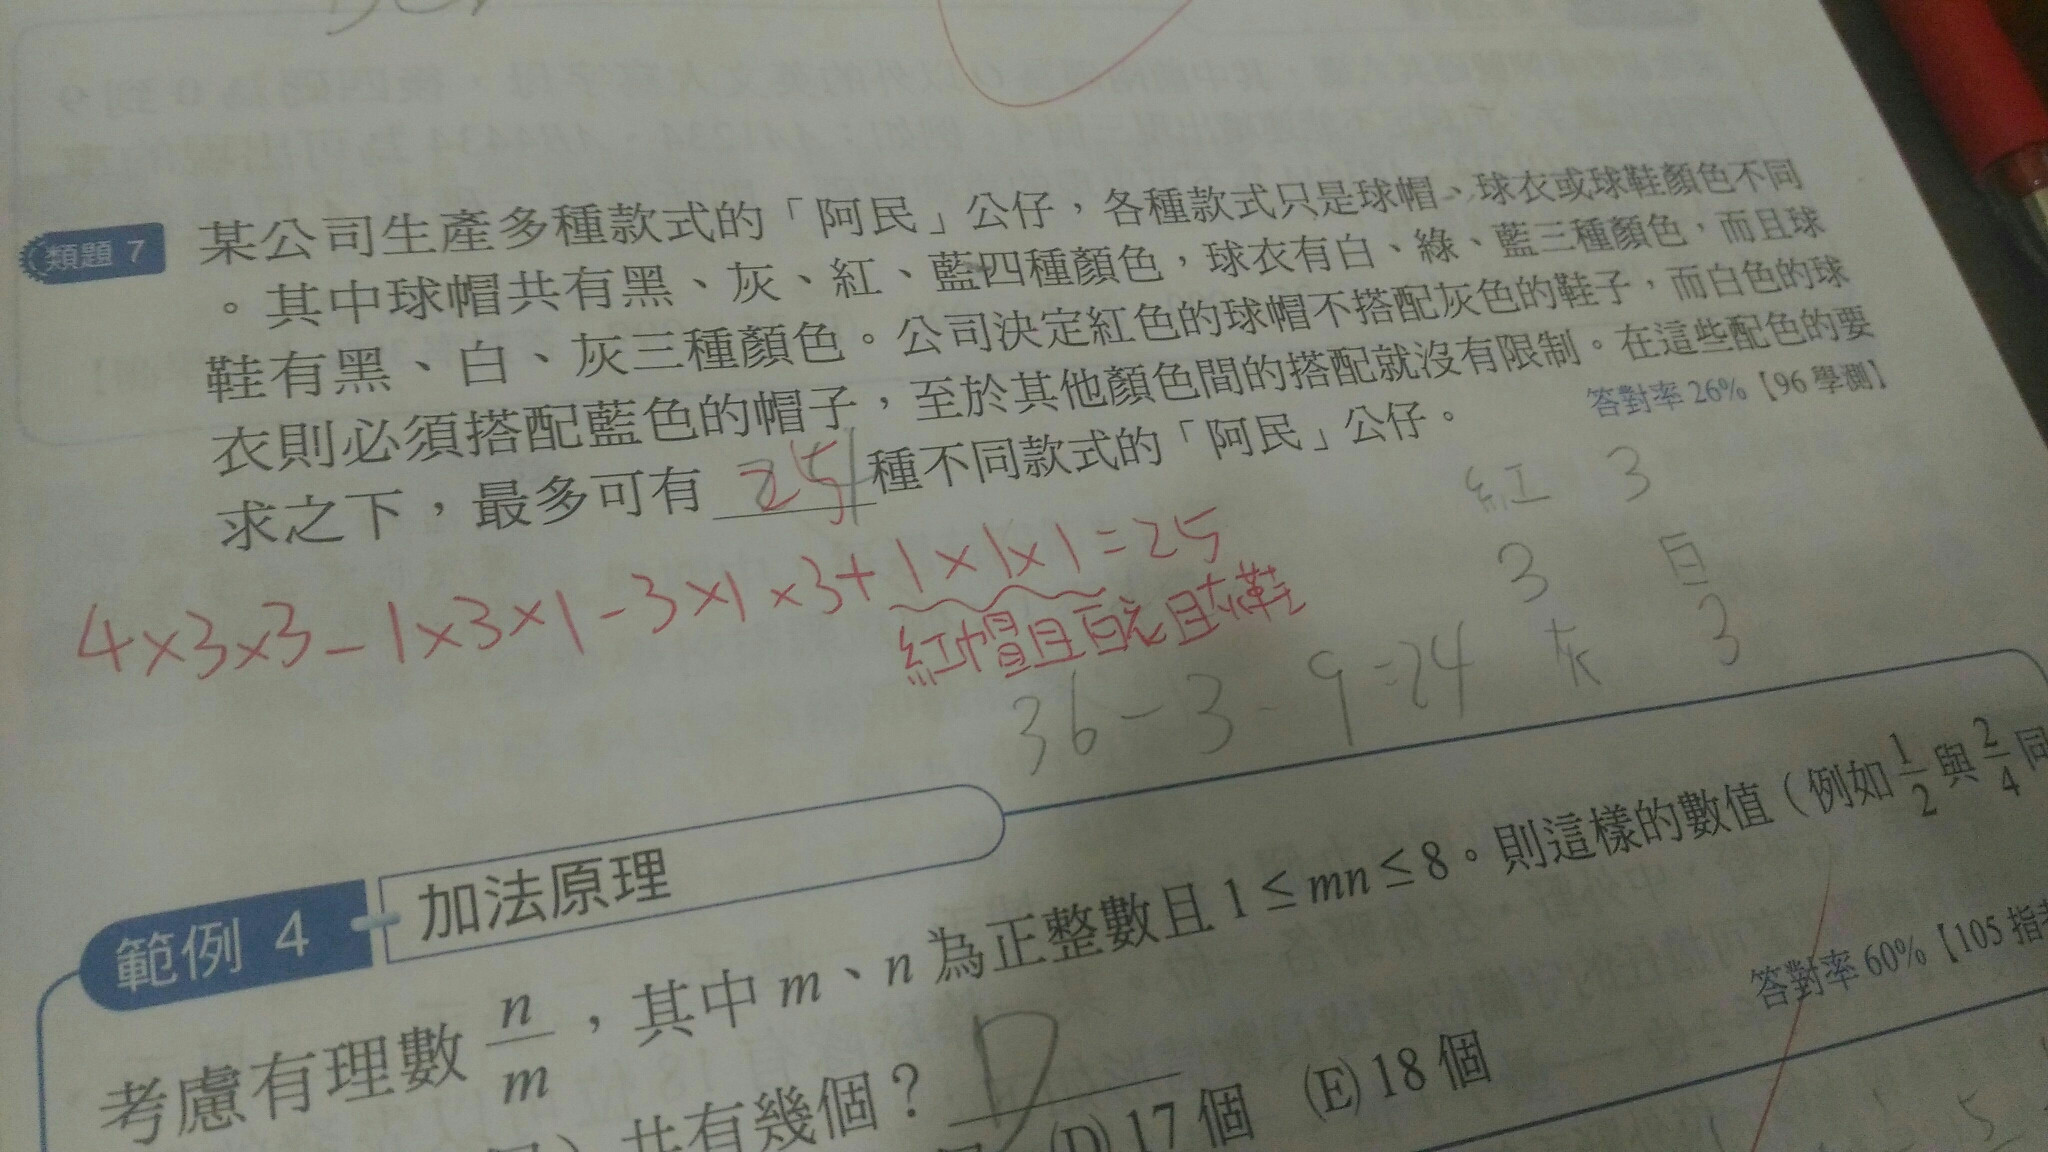 類題 7
某公司生產多種款式的「阿民」公仔，各種款式只是球帽、球衣或球鞋顏色不同
。其中球帽共有黑、灰、紅、藍四種顏色，球衣有白、綠、藍三種顏色，而且球
鞋有黑、白、灰三種顏色。公司決定紅色的球帽不搭配灰色的鞋子，而白色的球
衣則必須搭配藍色的帽子，至於其他顏色間的搭配就沒有限制。在這些配色的要
求之下，最多可有 25 種不同款式的「阿民」公仔。
答對率 26%【96 學測】
紅 3
3 白
灰 3
4×3×3－1×3×1－3×1×3＋1×1×1＝25
紅帽且白衣且灰鞋
36－3－9＝24
範例 4 加法原理
考慮有理數 n/m，其中 m、n 為正整數且 1≤mn≤8。則這樣的數值（例如 1/2 與 2/4 同
共有幾個？ D
答對率 60%【105 指
(D) 17 個 (E) 18 個